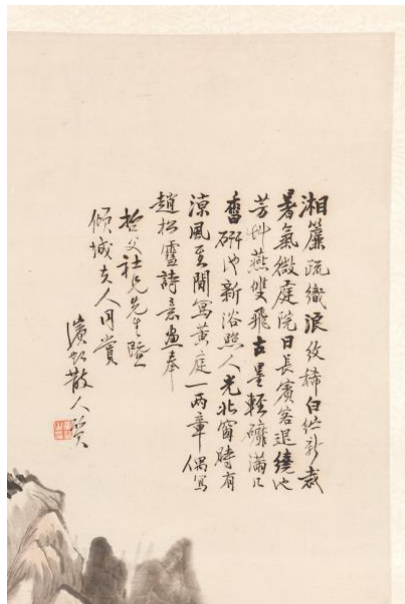 湘簾疏織浪紋稀白苎新裁
暑氣微庭院日長賓客退繞池
芳艸燕雙飛古墨輕磨滿几
香研池新浴照人光北窗時有
涼風至閒寫黃庭一兩章偶寫
趙松雪詩意畫奉
哲父社兄先生暨
傾城夫人同賞
濱虹散人質